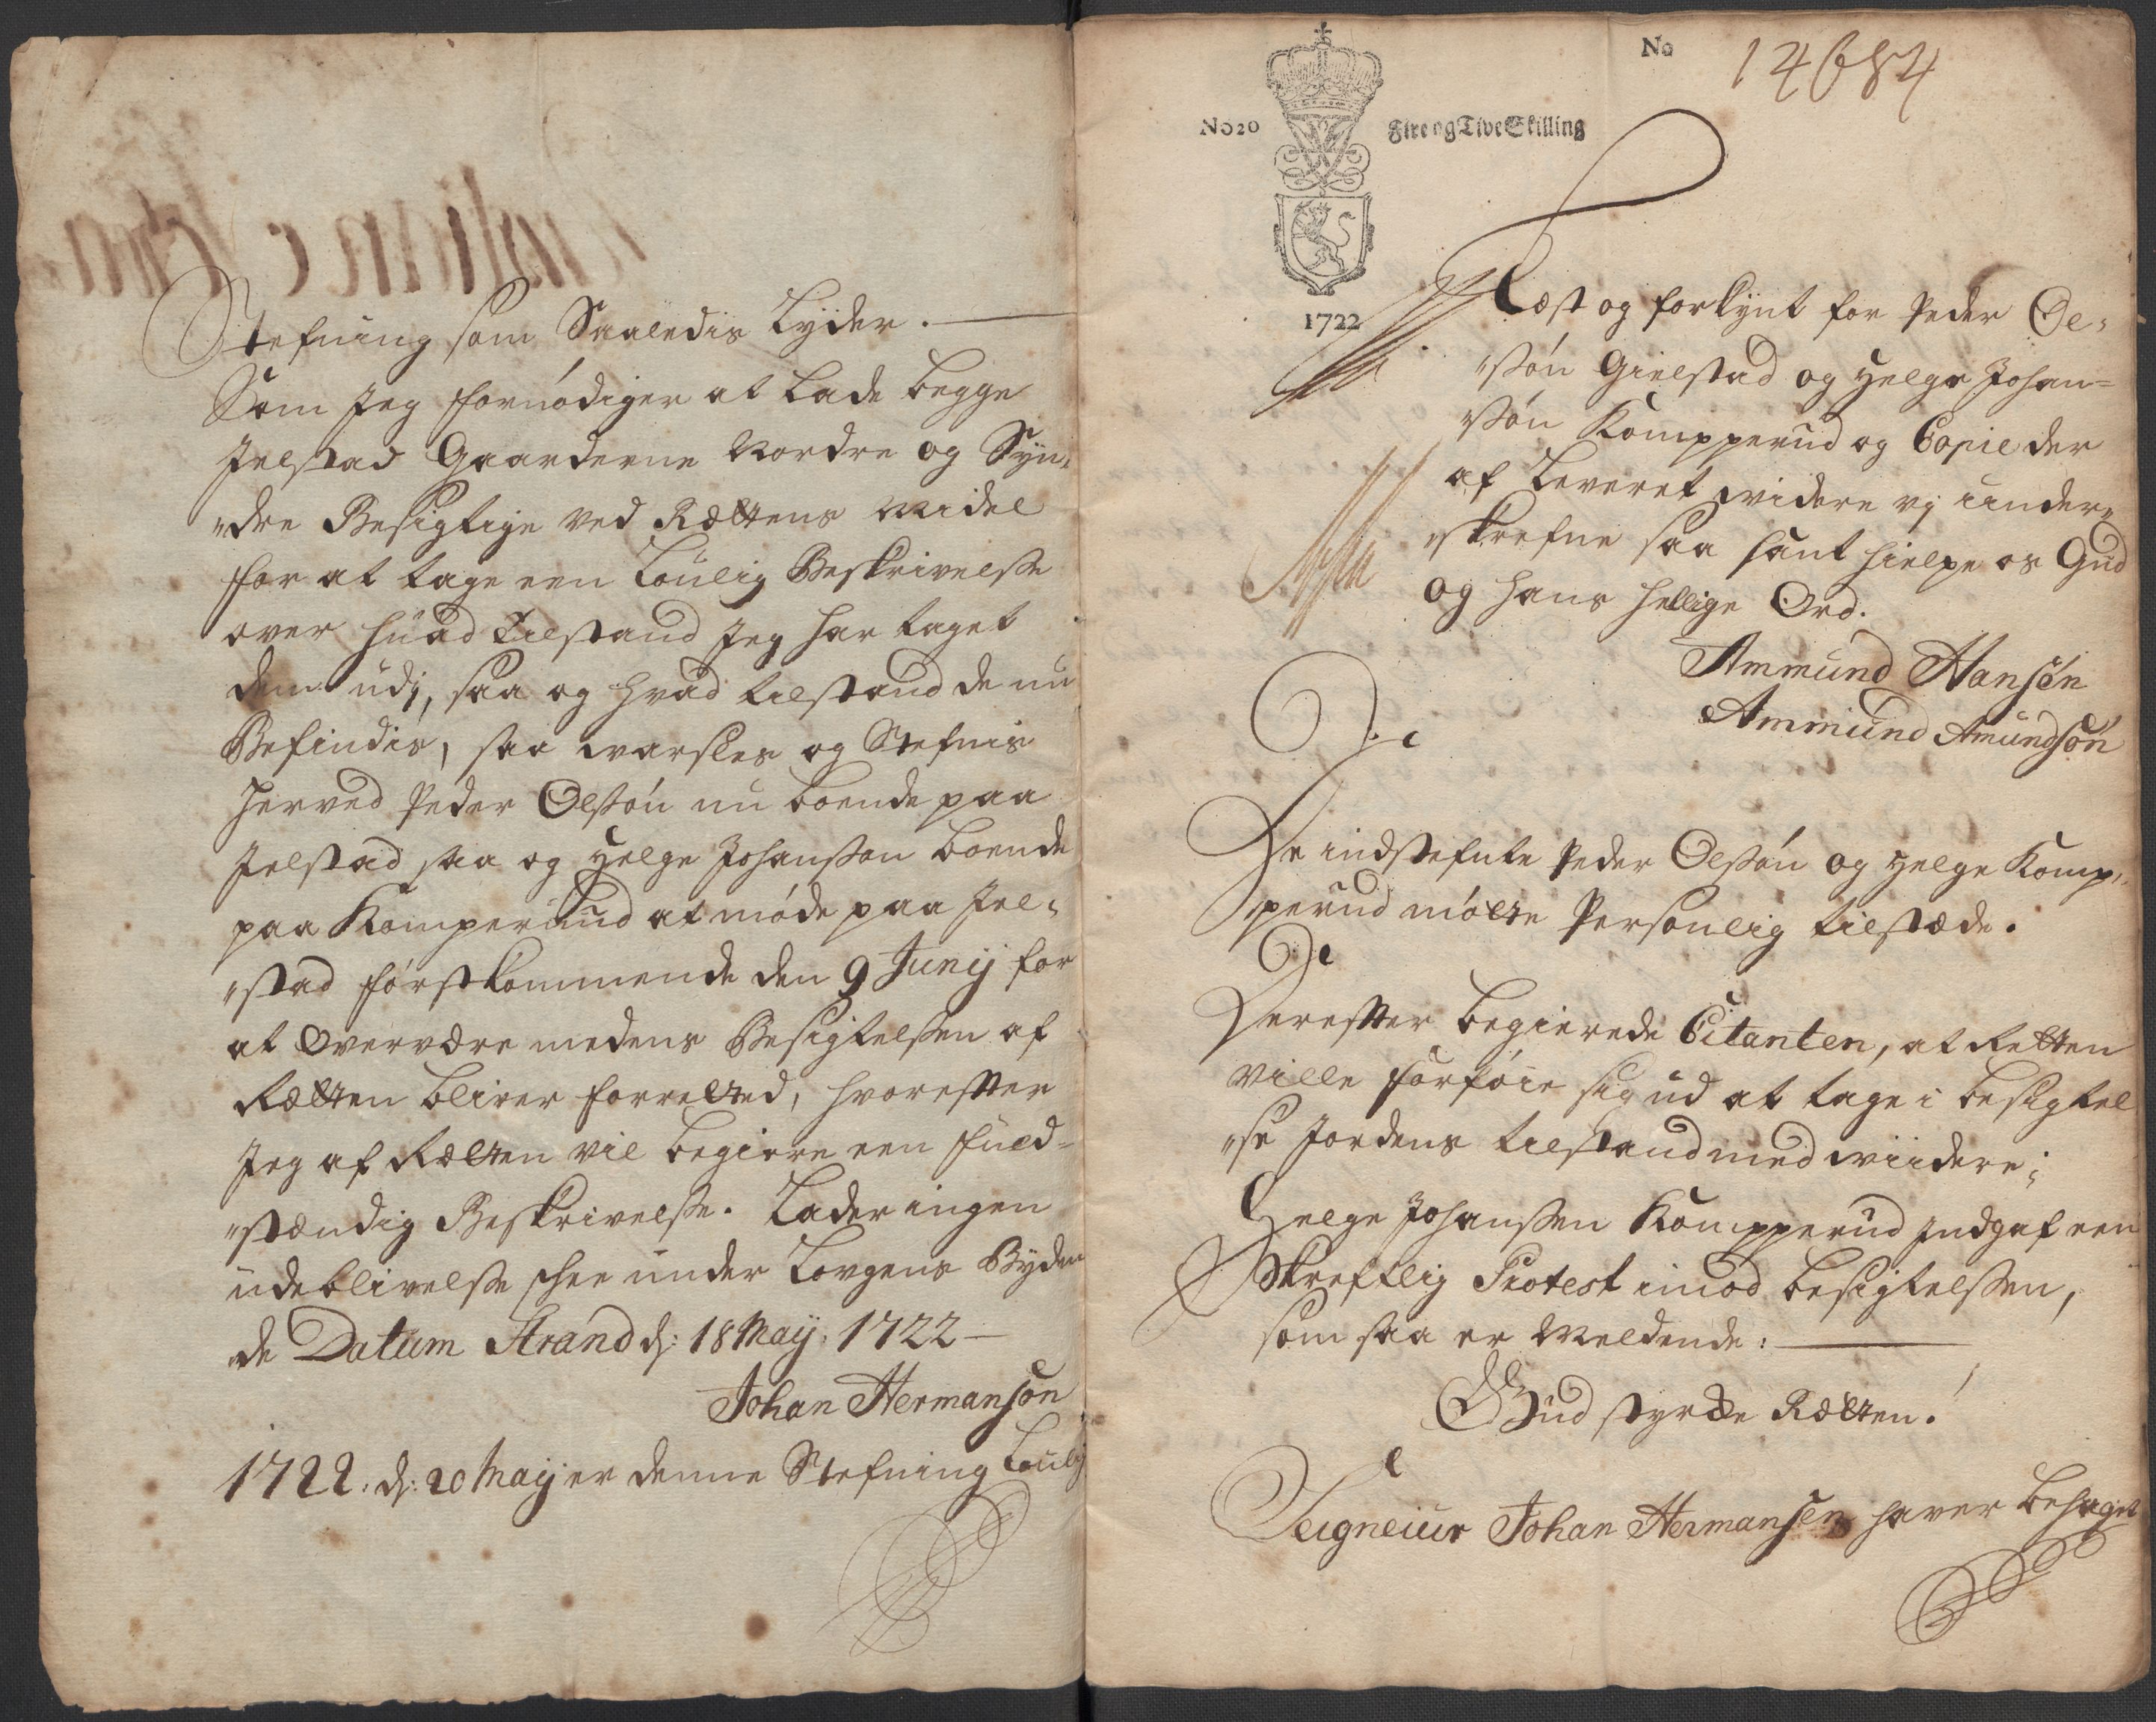 Stefning som Saaledis Lyder.
Som Jeg fornødiger at Lade begge
Jelstad Gaarderne Nordre og Syn„
„dre Besigtige ved Rettens Midel
for at tage een Loulig Beskrivelsse
over huad tilstand Jeg har taget
dem udj, saa og hvad tilstand de nu
Befindis, saa warsles og Stefnis
herved Peder Olssøn nu boende paa
Jelstad saa og Helge Johanssøn boende
paa Komperuud at møde paa Jel„
„stad førstkommende den 9 Junij for
at Overvære medens Besigtelssen af
Rætten bliver forretted, hvoreffter
Jeg af Rætten vil begiere een fuld=
„stændig Beskrivelsse. Lader ingen
udeblivelsse skee under Lovgens Byden
„de Datum Strand d: 18 Maij: 1722 —
Johan Hermansøn
1722: d: 20 Maij er denne Stefning Loulig
No 14684
No 20 Fire og Tive Skilling
1722
Læst og forkynt for Peder Ol„
„ssøn Gielstad og Helge Johan=
ssøn Kompperud og Copie der
af Leveret widere vj under„
„skrefne saa sant hielpe os Gud
og hans hellige Ord.
Ammund Hansøn
Ammund Amundsøn
De indstefnte Peder Olssøn og Helge Komp„
„perud møtte Personlig tilstæde.
Dereffter begierede Citanten, at Retten
ville forføie sig ud at tage i besigtel
„se Jordens tilstand med wiidere;
Helge Johanssen Kompperud Indgaf een
Skrefftlig Protest imod besigtelssen,
som saa er Meldende:
Gud styrcke Rætten!
Seigneiur Johan Hermansen haver behaget